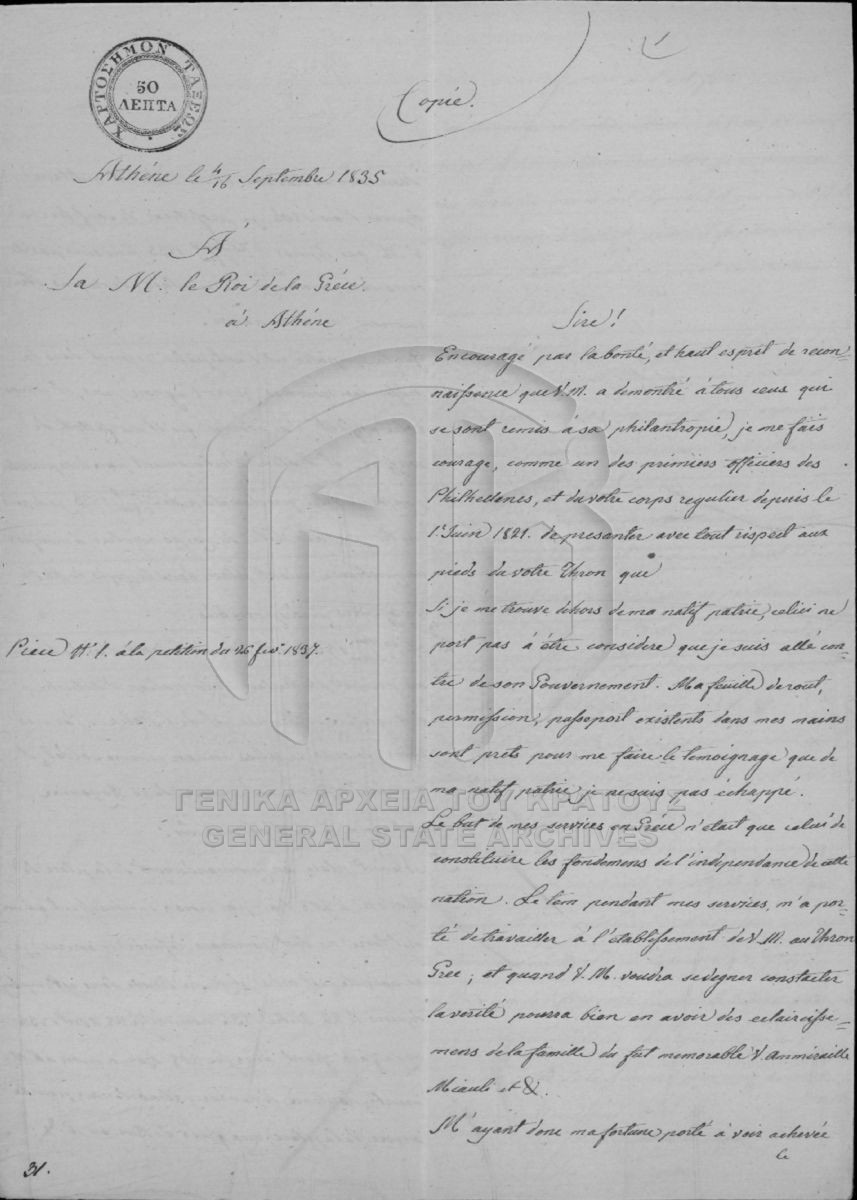 ΧΑΡΤΟΣΗΜΟΝ ΤΑΞΕΩΣ
50
ΛΕΠΤΑ
Copie.
Athéne le 4/16 Septembre 1835
A
Sa M. le Roi de la Gréce.
à Athéne
Sire!
Encouragé par la bonté, et haut esprèt de recon=
naissence que V.M. a demontré à tous ceus qui
se sont remis à sa philantropie, je me fais
courage, comme un des primiers officiers des
Philhellenes, et du votre corps regulier depuis le
1r Juin 1821. de presenter avec tout rispect aux
pieds du votre Thron que
Si je me trouve dehors de ma natif patrie, celui ne
port pas à étre considere que je suis allé con=
tre de son Gouvernement. Ma feuille de rout,
permission, passeport existents dans mes mains
sont prets pour me faire le temoignage que de
ma natif patrie je ne suis pas échappé.
Le but de mes services en Gréce n'etait que celui de
constituire les fondemens de l'independance de cette
nation. Le tem pendant mes services, m'a por=
té de travailler à l'etablessement de V.M. au Thron
Grec; et quand V.M. voudra se degner constater
la verité pourra bien en avoir des eclaircisse=
mens de la famille du fut memorable V. Ammiraille
Miauli et &.
M'ayant donc ma fortune porté à voir achevée
le
Piece No 1. à la petition du 26 fevr 1837.
31.
ΓΕΝΙΚΑ ΑΡΧΕΙΑ ΤΟΥ ΚΡΑΤΟΥΣ
GENERAL STATE ARCHIVES